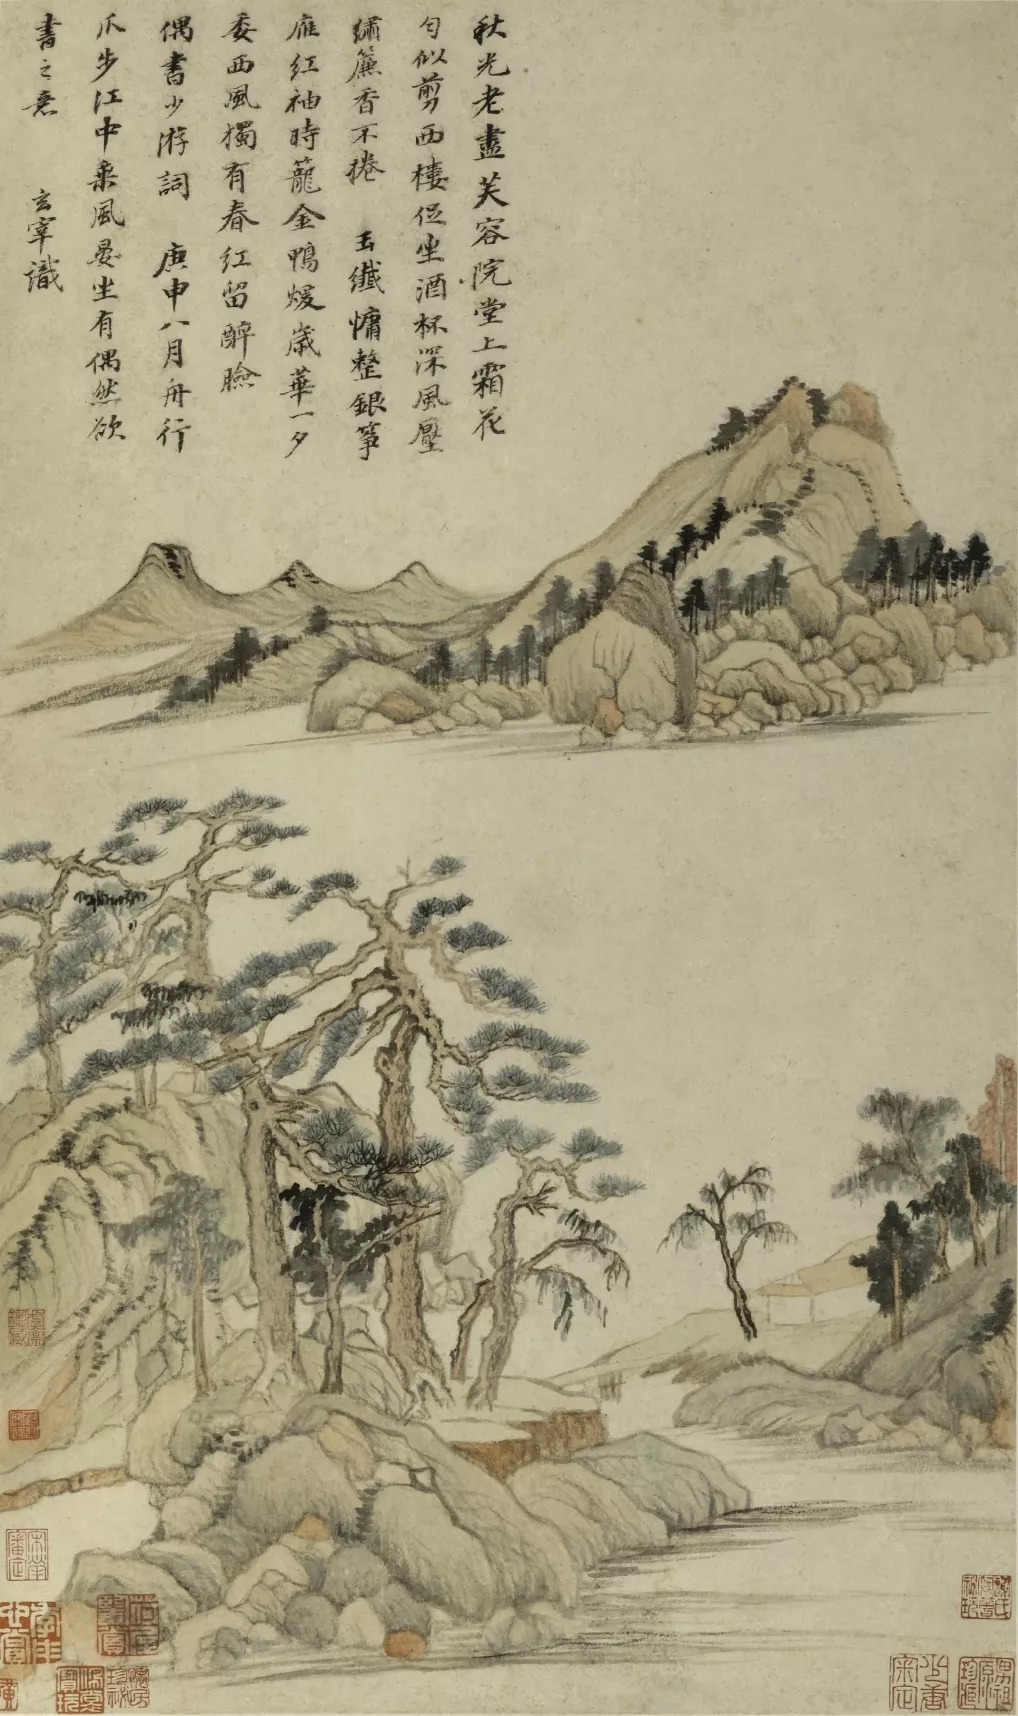 秋光老盡芙容院堂上霜花
勻似剪西樓促坐酒杯深風壓
繡簾香不捲 玉纖慵整銀箏
雁紅袖時籠金鴨煖歲華一夕
委西風獨有春紅留醉臉
偶書少游詞 庚申八月舟行
爪步江中乘風晏坐有偶然欲
書之意 玄宰識